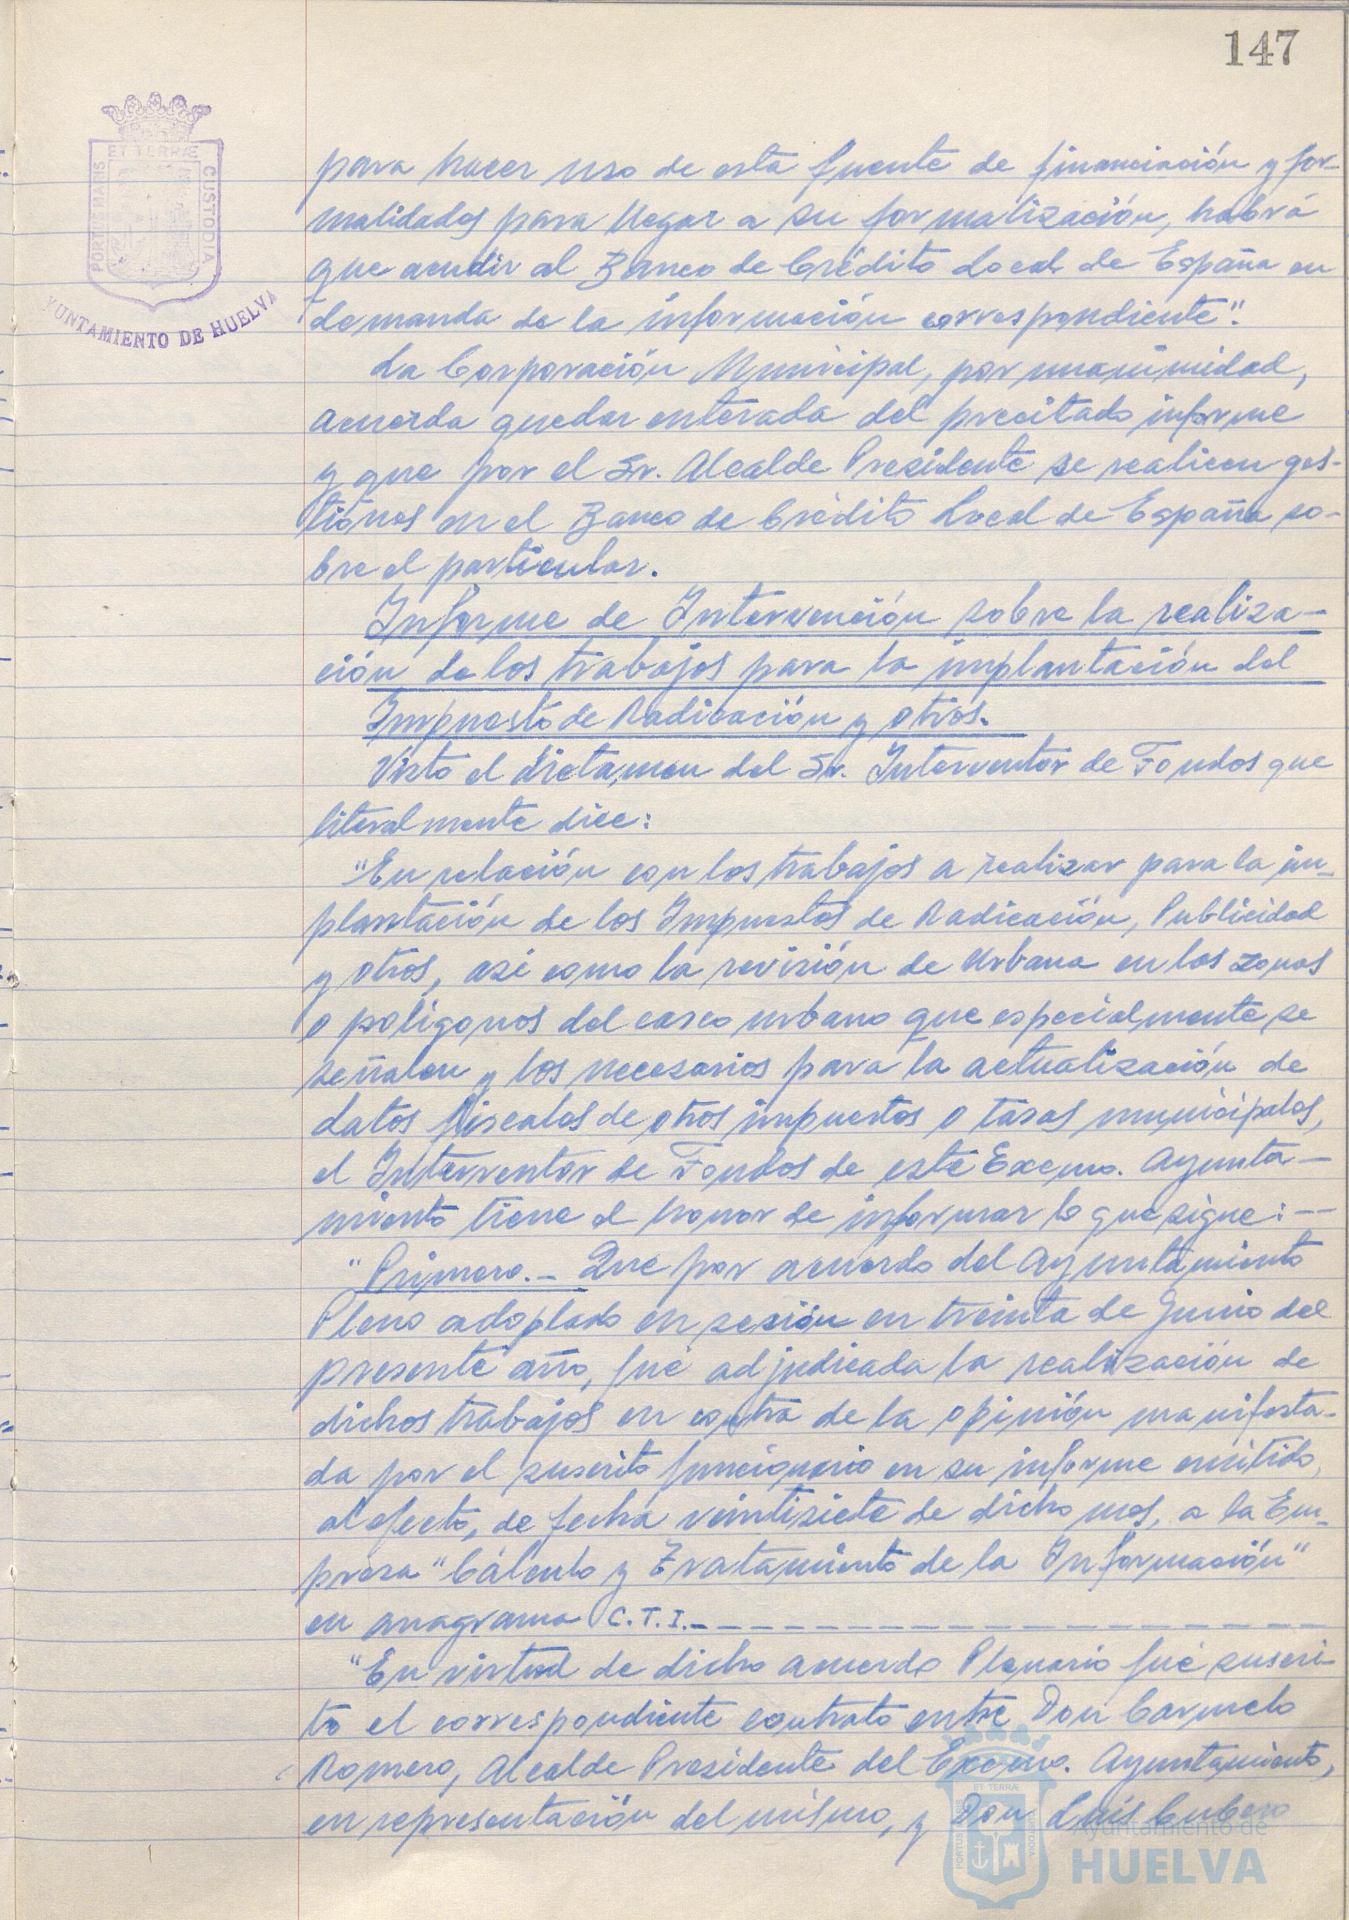 147
ET TERRÆ
PORTUS MARIS
CUSTODIA
YUNTAMIENTO DE HUELVA
para hacer uso de esta fuente de financiación y for-
malidades para llegar a su formalización, habrá
que acudir al Banco de Crédito Local de España en
demanda de la información correspondiente".
La Corporación Municipal, por unanimidad,
acuerda quedar enterada del precitado informe
y que por el Sr. Alcalde Presidente se realicen ges-
tiones en el Banco de Crédito Local de España so-
bre el particular.
Informe de Intervención sobre la realiza-
ción de los trabajos para la implantación del
Impuesto de Radicación y otros.
Visto el dictamen del Sr. Interventor de Fondos que
literalmente dice:
"En relación con los trabajos a realizar para la im-
plantación de los Impuestos de Radicación, Publicidad
y otros, así como la revisión de Urbana en las zonas
o polígonos del casco urbano que especialmente se
señalen y los necesarios para la actualización de
datos fiscales de otros impuestos o tasas municipales,
el Interventor de Fondos de este Excmo. Ayunta-
miento tiene el honor de informar lo que sigue: --
"Primero.- Que por acuerdo del Ayuntamiento
Pleno adoptado en sesión en treinta de Junio del
presente año, fué adjudicada la realización de
dichos trabajos en contra de la opinión manifesta-
da por el suscrito funcionario en su informe emitido,
al efecto, de fecha veintisiete de dicho mes, a la Em-
presa "Cálculo y Tratamiento de la Información"
en anagrama C.T.I.- - - - - - - - - - - - - - - -
"En virtud de dicho acuerdo Plenario fué suscri-
to el correspondiente contrato entre Don Carmelo
Romero, Alcalde Presidente del Excmo. Ayuntamiento,
en representación del mismo, y Don Luis Cubero
ET TERRÆ
PORTUS MARIS
CUSTODIA
Ayuntamiento de
HUELVA